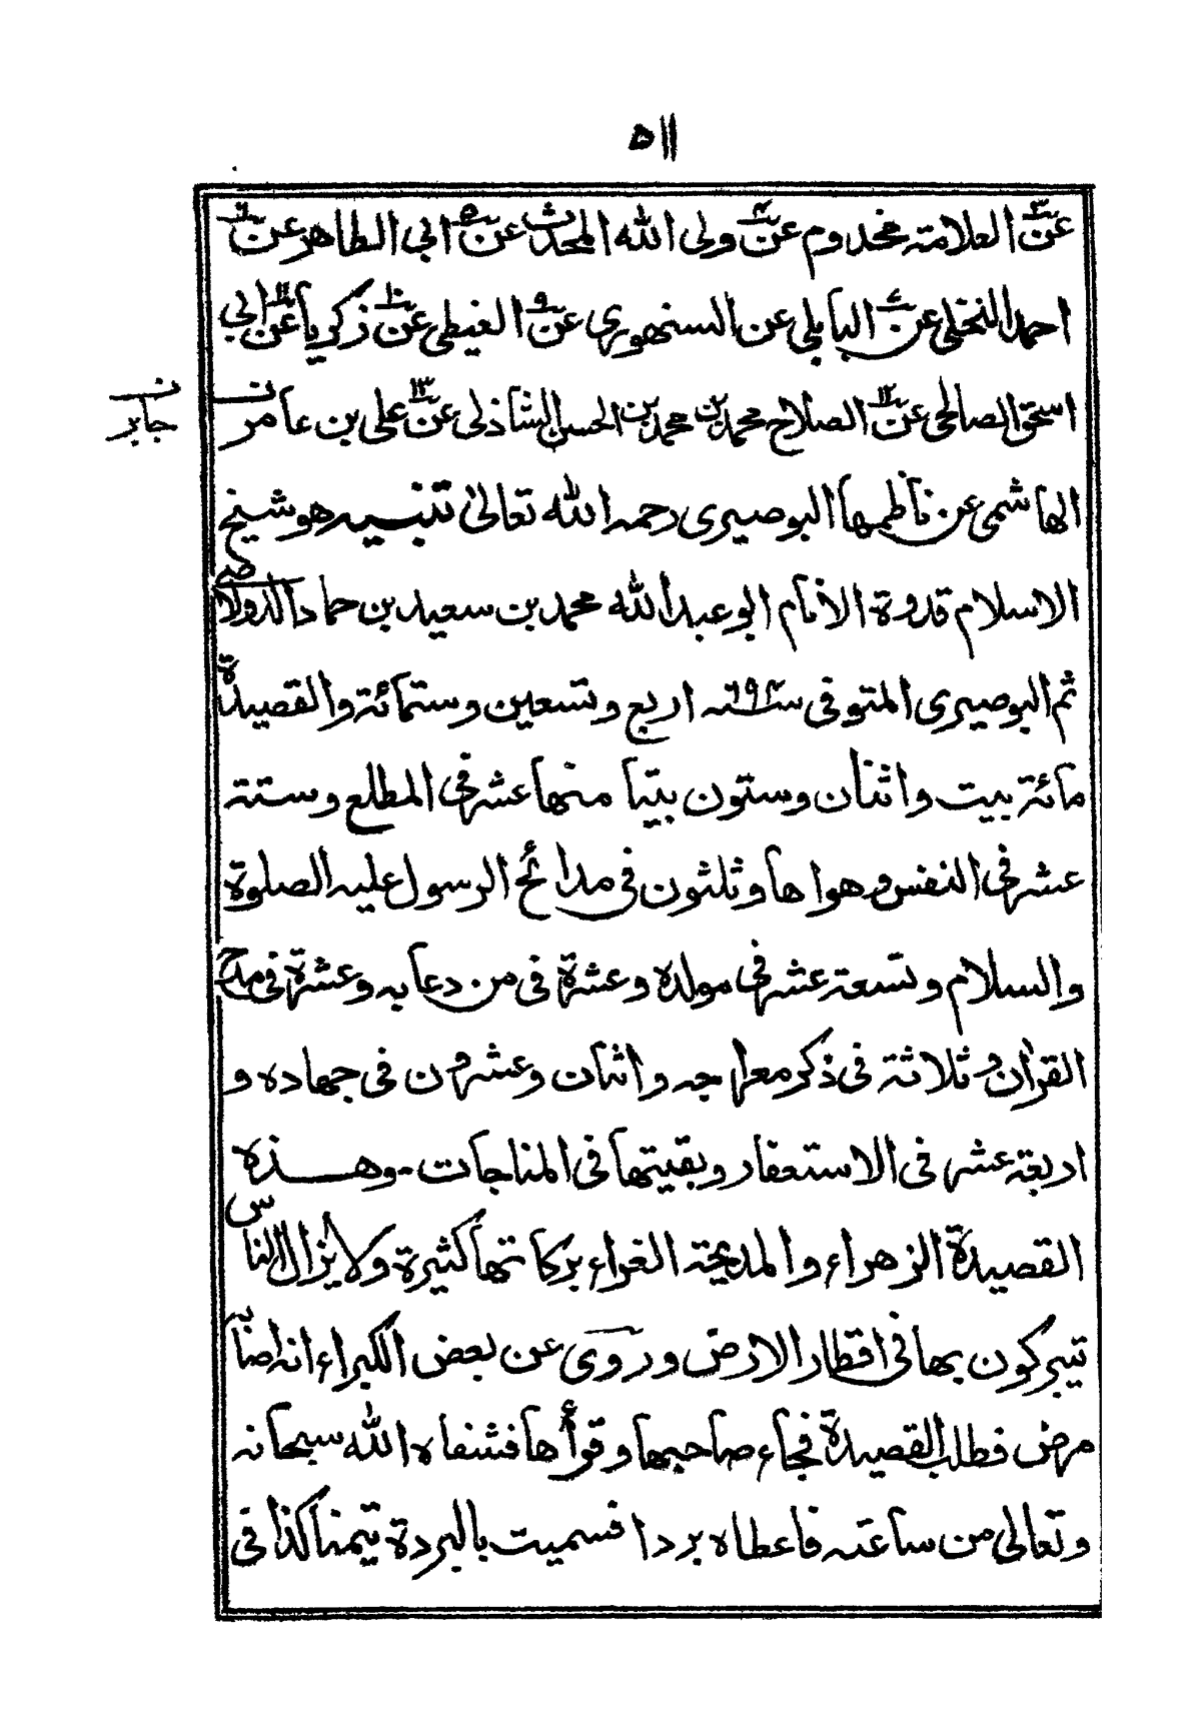 ۵۱۱
عن۳ العلامة مخدوم عن۴ ولى الله المحدث عن۵ ابى الطاهر عن۶
احمد النخلى عن۷ البابلى عن السنهورى عن۹ الغيطى عن۱۰ زكريا عن۱۱ ابى
اسحق الصالحى عن۱۲ الصلاح محمد بن محمد بن الحسن الشاذلى عن۱۳ على بن عامر ن
ن جابر
الهاشمى عن ناظمها البوصيرى رحمه الله تعالىٰ تنبيه هو شيخ
الاسلام قدوة الانام ابو عبد الله محمد بن سعيد بن حماد الدولاصى
ثم البوصيرى المتوفى سنة ۶۹۴ اربع وتسعين وستمائة والقصيدة
مائة بيت واثنان وستون بيتا منها عشر فى المطلع وستة
عشر فى النفس وهواها وثلثون فى مدائح الرسول عليه الصلوة
والسلام وتسعة عشر فى مولده وعشرة فى من دعا به وعشرة فى مدح
القرآن وثلاثة فى ذكر معراجه واثنان وعشرون فى جهاده و
اربعة عشر فى الاستعفار وبقيتها فى المناجات - وهذه
القصيدة الزهراء والمديحة الغراء بركاتها كثيرة ولا يزال الناس
تيبركون بها فى اقطار الارض وروى عن بعض الكبراء انه اصابه
مرض فطلب القصيدة فجاء صاحبها وقرأها فشفاه الله سبحانه
وتعالى من ساعته فاعطاه بردا فسميت بالبردة تيمنا كذا فى